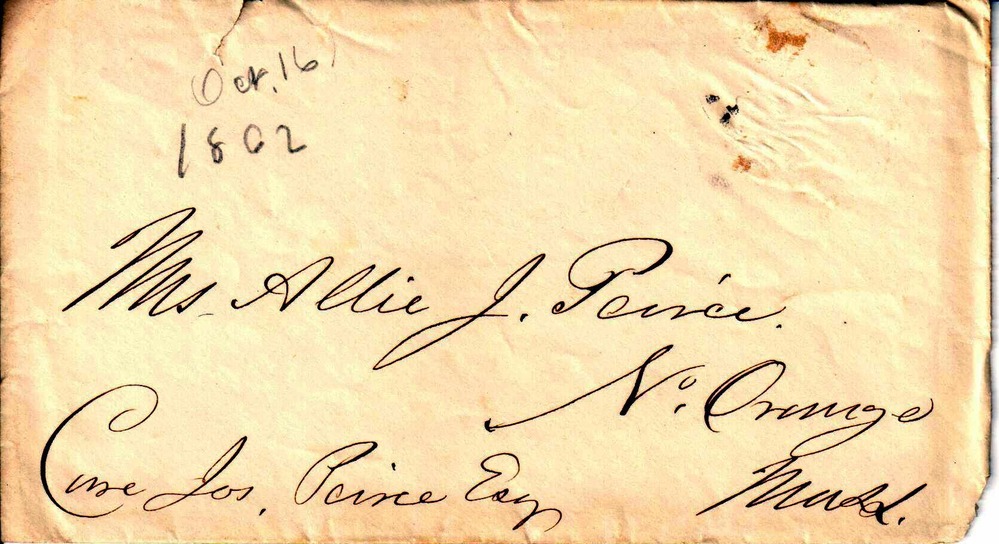 Oct. 16
1862
Mrs Allie J. Peirce.
No. Orange
Care Jos. Peirce Esq
Mass.